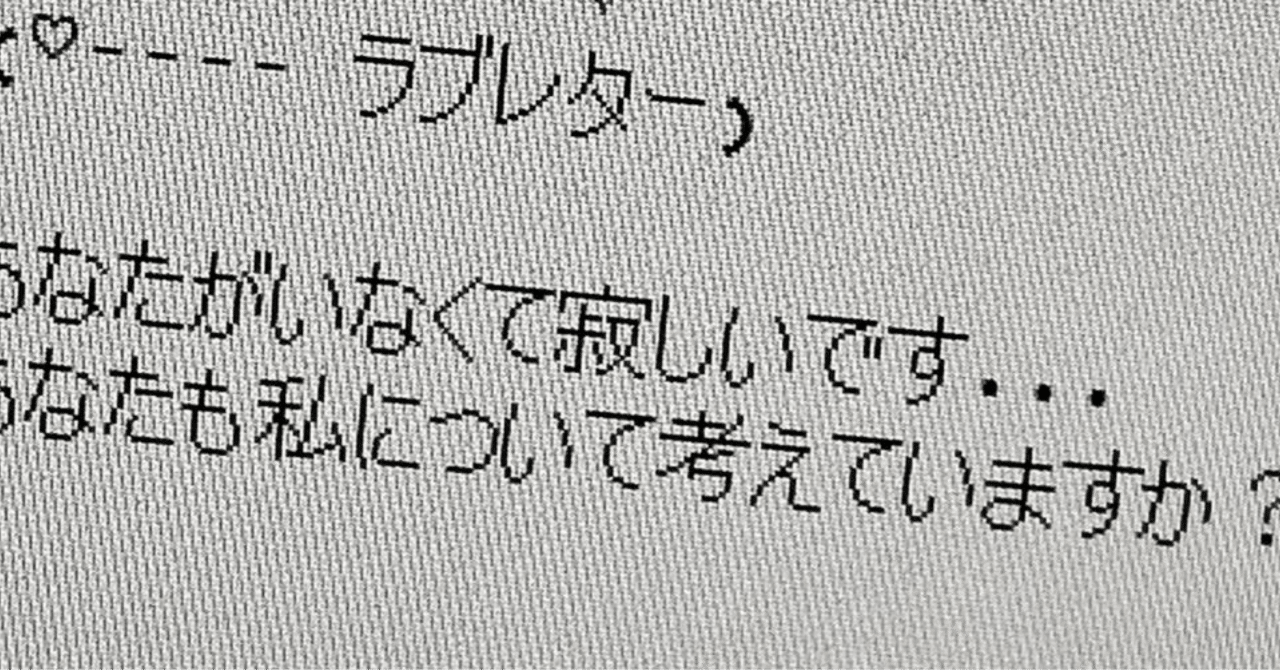 ♡---- ラブレター)
あなたがいなくて寂しいです...
あなたも私について考えていますか？